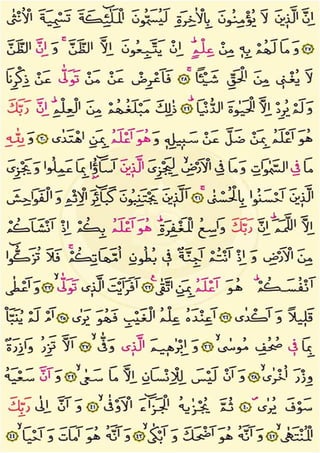 اِنَّ الَّذ۪ينَ لَا يُؤْمِنُونَ بِالْاٰخِرَةِ لَيُسَمُّونَ الْمَلٰٓئِكَةَ تَسْمِيَةَ الْاُنْثٰى
﴿٢٧﴾ وَمَا لَهُمْ بِه۪ مِنْ عِلْمٍۜ اِنْ يَتَّبِعُونَ اِلَّا الظَّنَّۚ وَاِنَّ الظَّنَّ
لَا يُغْن۪ي مِنَ الْحَقِّ شَيْـًٔاۚ ﴿٢٨﴾ فَاَعْرِضْ عَنْ مَنْ تَوَلّٰى عَنْ ذِكْرِنَا
وَلَمْ يُرِدْ اِلَّا الْحَيٰوةَ الدُّنْيَاۜ ﴿٢٩﴾ ذٰلِكَ مَبْلَغُهُمْ مِنَ الْعِلْمِۜ اِنَّ رَبَّكَ
هُوَ اَعْلَمُ بِمَنْ ضَلَّ عَنْ سَب۪يلِه۪ وَهُوَ اَعْلَمُ بِمَنِ اهْتَدٰى ﴿٣٠﴾ وَلِلّٰهِ
مَا فِي السَّمٰوَاتِ وَمَا فِي الْاَرْضِۙ لِيَجْزِيَ الَّذ۪ينَ اَسَٓاؤُ۫ا بِمَا عَمِلُوا وَيَجْزِيَ
الَّذ۪ينَ اَحْسَنُوا بِالْحُسْنٰىۚ ﴿٣١﴾ اَلَّذ۪ينَ يَجْتَنِبُونَ كَبَٓائِرَ الْاِثْمِ وَالْفَوَاحِشَ
اِلَّا اللَّمَمَۜ اِنَّ رَبَّكَ وَاسِعُ الْمَغْفِرَةِۜ هُوَ اَعْلَمُ بِكُمْ اِذْ اَنْشَاَكُمْ
مِنَ الْاَرْضِ وَاِذْ اَنْتُمْ اَجِنَّةٌ ف۪ي بُطُونِ اُمَّهَاتِكُمْۚ فَلَا تُزَكُّٓوا
اَنْفُسَكُمْۜ هُوَ اَعْلَمُ بِمَنِ اتَّقٰى۟ ﴿٣٢﴾ اَفَرَاَيْتَ الَّذ۪ي تَوَلّٰىۙ ﴿٣٣﴾ وَاَعْطٰى
قَل۪يلًا وَاَكْدٰى ﴿٣٤﴾ اَعِنْدَهُ عِلْمُ الْغَيْبِ فَهُوَ يَرٰى ﴿٣٥﴾ اَمْ لَمْ يُنَبَّأْ
بِمَا ف۪ي صُحُفِ مُوسٰىۙ ﴿٣٦﴾ وَاِبْرٰه۪يمَ الَّذ۪ي وَفّٰىۙ ﴿٣٧﴾ اَلَّا تَزِرُ وَازِرَةٌ
وِزْرَ اُخْرٰىۙ ﴿٣٨﴾ وَاَنْ لَيْسَ لِلْاِنْسَانِ اِلَّا مَا سَعٰىۙ ﴿٣٩﴾ وَاَنَّ سَعْيَهُ
سَوْفَ يُرٰىۖ ﴿٤٠﴾ ثُمَّ يُجْزٰيهُ الْجَزَٓاءَ الْاَوْفٰىۙ ﴿٤١﴾ وَاَنَّ اِلٰى رَبِّكَ
الْمُنْتَهٰىۙ ﴿٤٢﴾ وَاَنَّهُ هُوَ اَضْحَكَ وَاَبْكٰىۙ ﴿٤٣﴾ وَاَنَّهُ هُوَ اَمَاتَ وَاَحْيَاۙ ﴿٤٤﴾